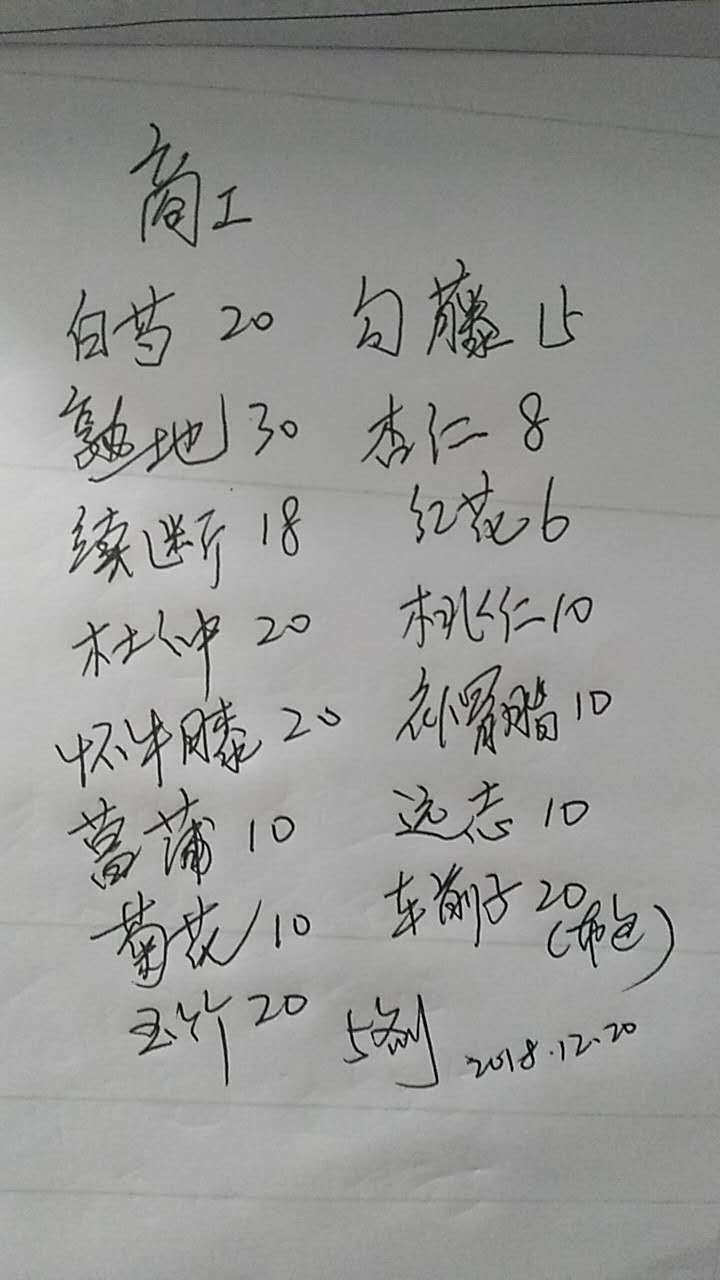 商工
白芍 20 勾藤 15
熟地 30 杏仁 8
续断 18 红花 6
杜仲 20 桃仁 10
怀牛膝 20 补骨脂 10
菖蒲 10 远志 10
菊花 10 车前子 20
(布包)
玉竹 20 5剂 2018.12.20